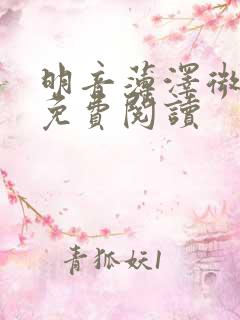 明音薄澤微
免費閱讀
青狐妖1